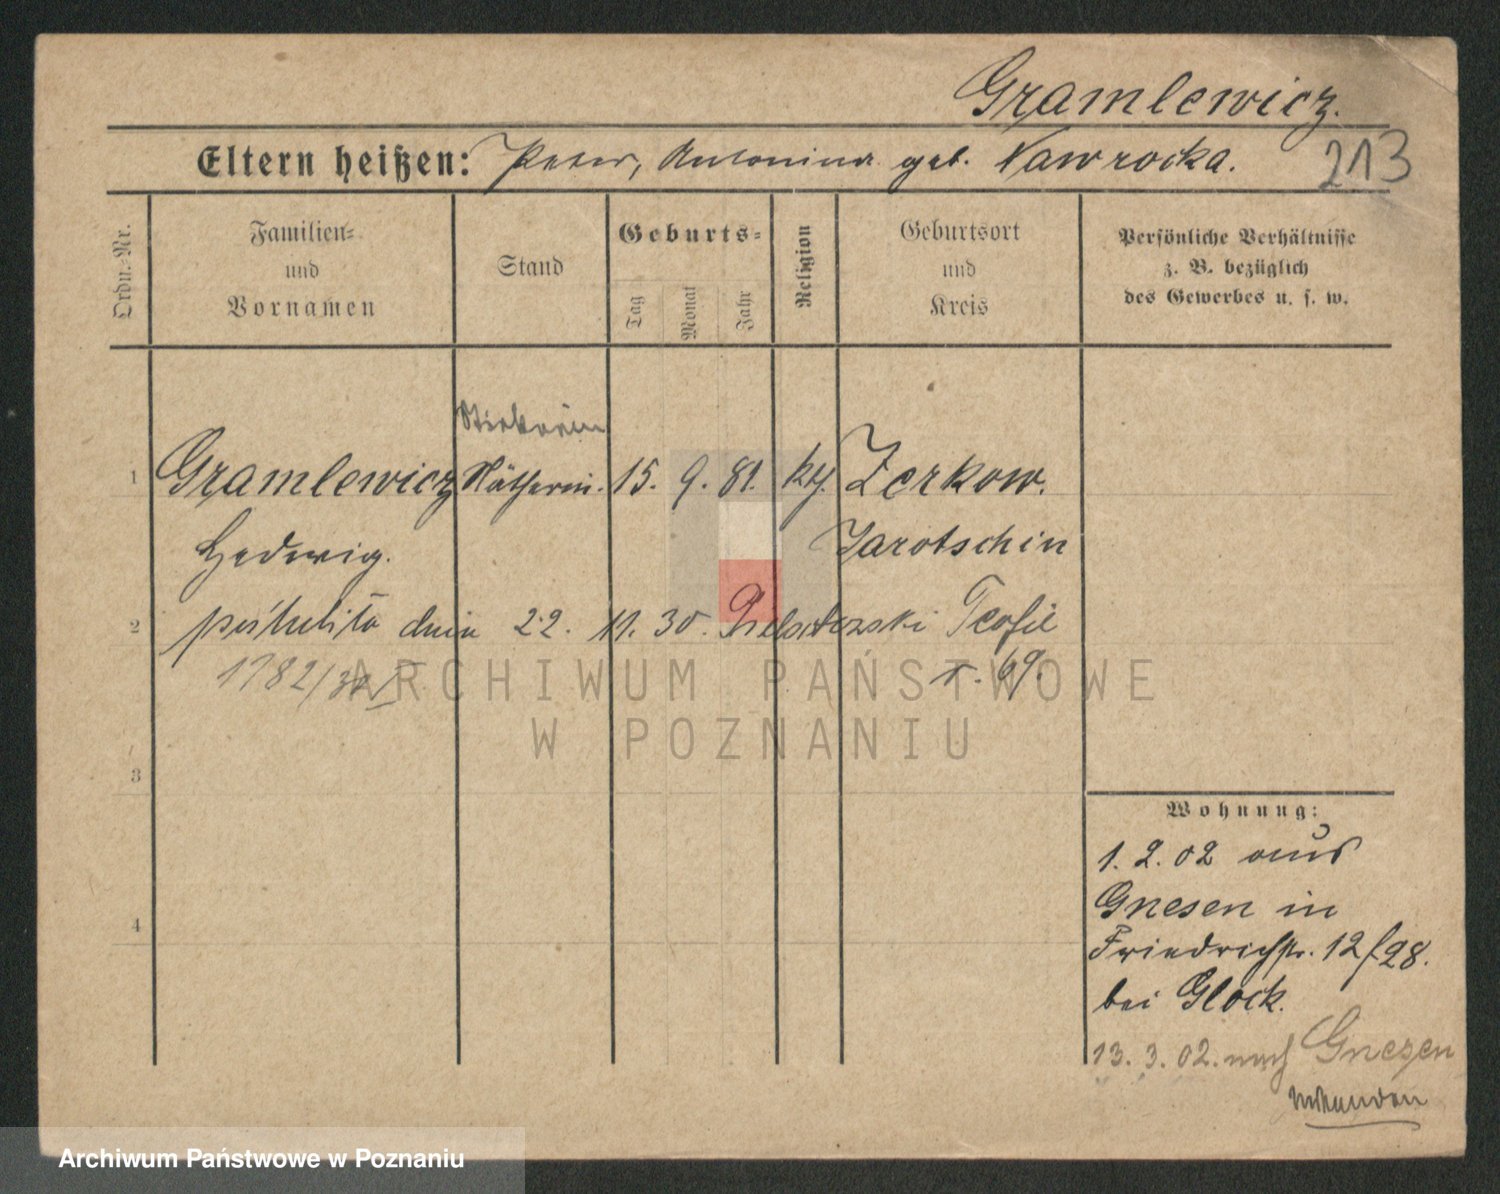 Gramlewicz.
Eltern heißen: Peter, Antonina geb. Nawrocka.
213
Ordn.-Nr.
Familien-
und
Vornamen
Stand
Geburts-
Tag
Monat
Jahr
Religion
Geburtsort
und
Kreis
Persönliche Verhältnisse
z. B. bezüglich
des Gewerbes u. s. w.
1 Gramlewicz Nätherin. 15. 9. 81. kth. Zerkow.
Hedwig. Jarotschin
2 dnia 22. 11. 30. Teofil
1782/30 r. 69.
3
4
Wohnung:
1. 2. 02 aus
Gnesen in
Friedrichstr. 12/28.
bei Glock.
13. 3. 02. nach Gnesen
ARCHIWUM PAŃSTWOWE
W POZNANIU
Archiwum Państwowe w Poznaniu